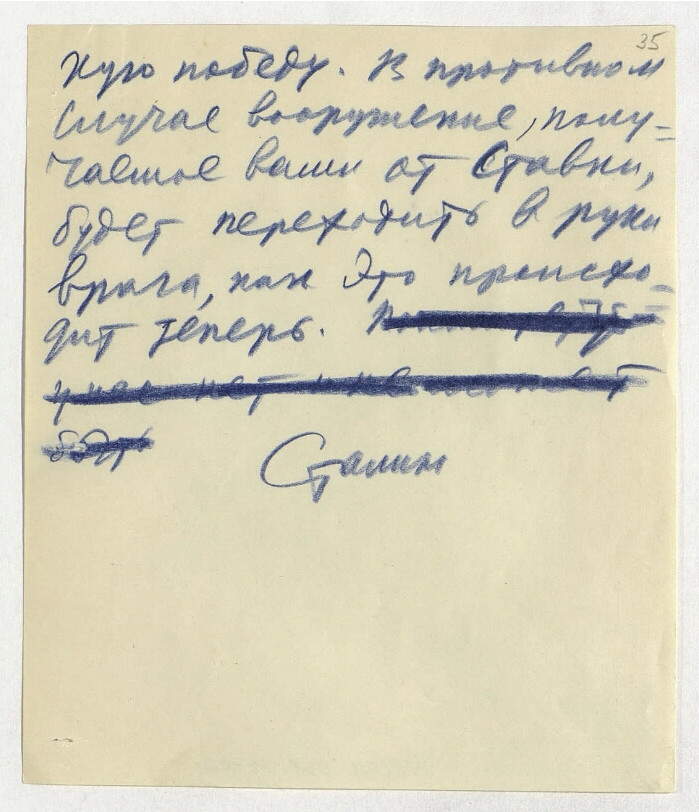 35
ную победу. В противном
случае вооружение, полу=
чаемое вами от Ставки,
будет переходить в руки
врага, как это происхо=
дит теперь.
у нас нет
быть
Сталин